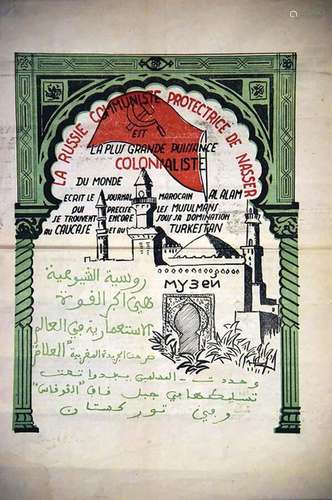 LA RUSSIE COMMUNISTE PROTECTRICE DE NASSER
EST
LA PLUS GRANDE PUISSANCE
COLONIALISTE
DU MONDE
ECRIT LE JOURNAL MAROCAIN AL ALAM
QUI PRECISE LES MUSULMANS
JE TROUVENT ENCORE SOUS JA DOMINATION
AU CAUCASE ET AU TURKESTAN
МУЗЕЙ
روسية الشيوعية
هي اكبر القوة
الاستعمارية في العالم
الجريدة المغربية "العلام"
وحددت المسلمين
جبل قاف "القوقاس"
وفي توركستان